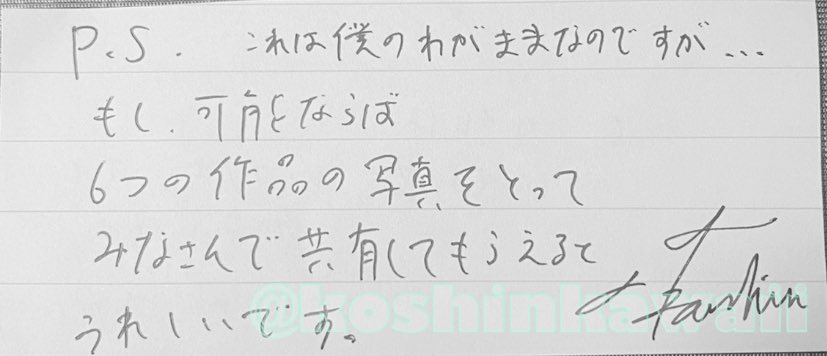 P.S. これは僕のわがままなのですが...
もし、可能ならば
6つの作品の写真をとって
みなさんで共有してもらえると
うれしいです。
@koshinkawaii